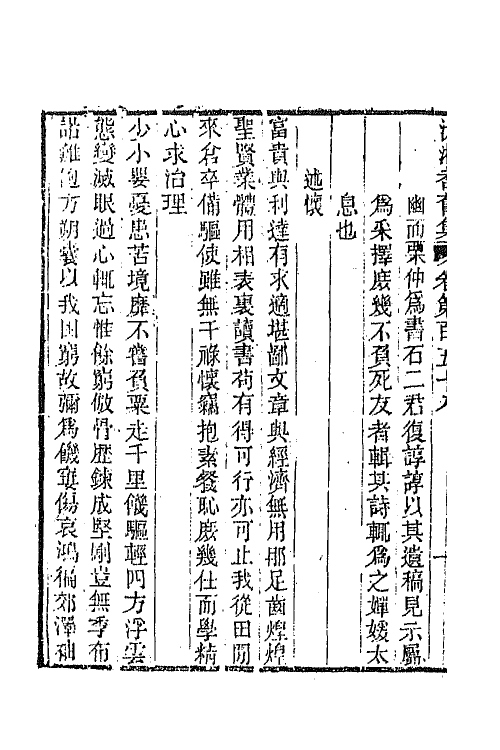 幽而栗仲爲書石二君復諄諄以其遺稿見示屬
爲采擇庶幾不負死友者輯其詩輒爲之嬋媛太
息也
述懷
富貴與利達有求適堪鄙文章與經濟無用那足齒煌煌
聖賢業體用相表裏讀書苟有得可行亦可止我從田間
來倉卒備驅使雖無干祿懷竊抱素餐恥庶幾仕而學精
心求治理
少小嬰憂患苦境靡不嘗負粟走千里饑驅輕四方浮雲
態變滅眼過心輒忘惟餘窮傲骨歷鍊成堅剛豈無季布
諾難飽方朔囊以我困窮故彌爲饑寠傷哀鴻徧郊澤